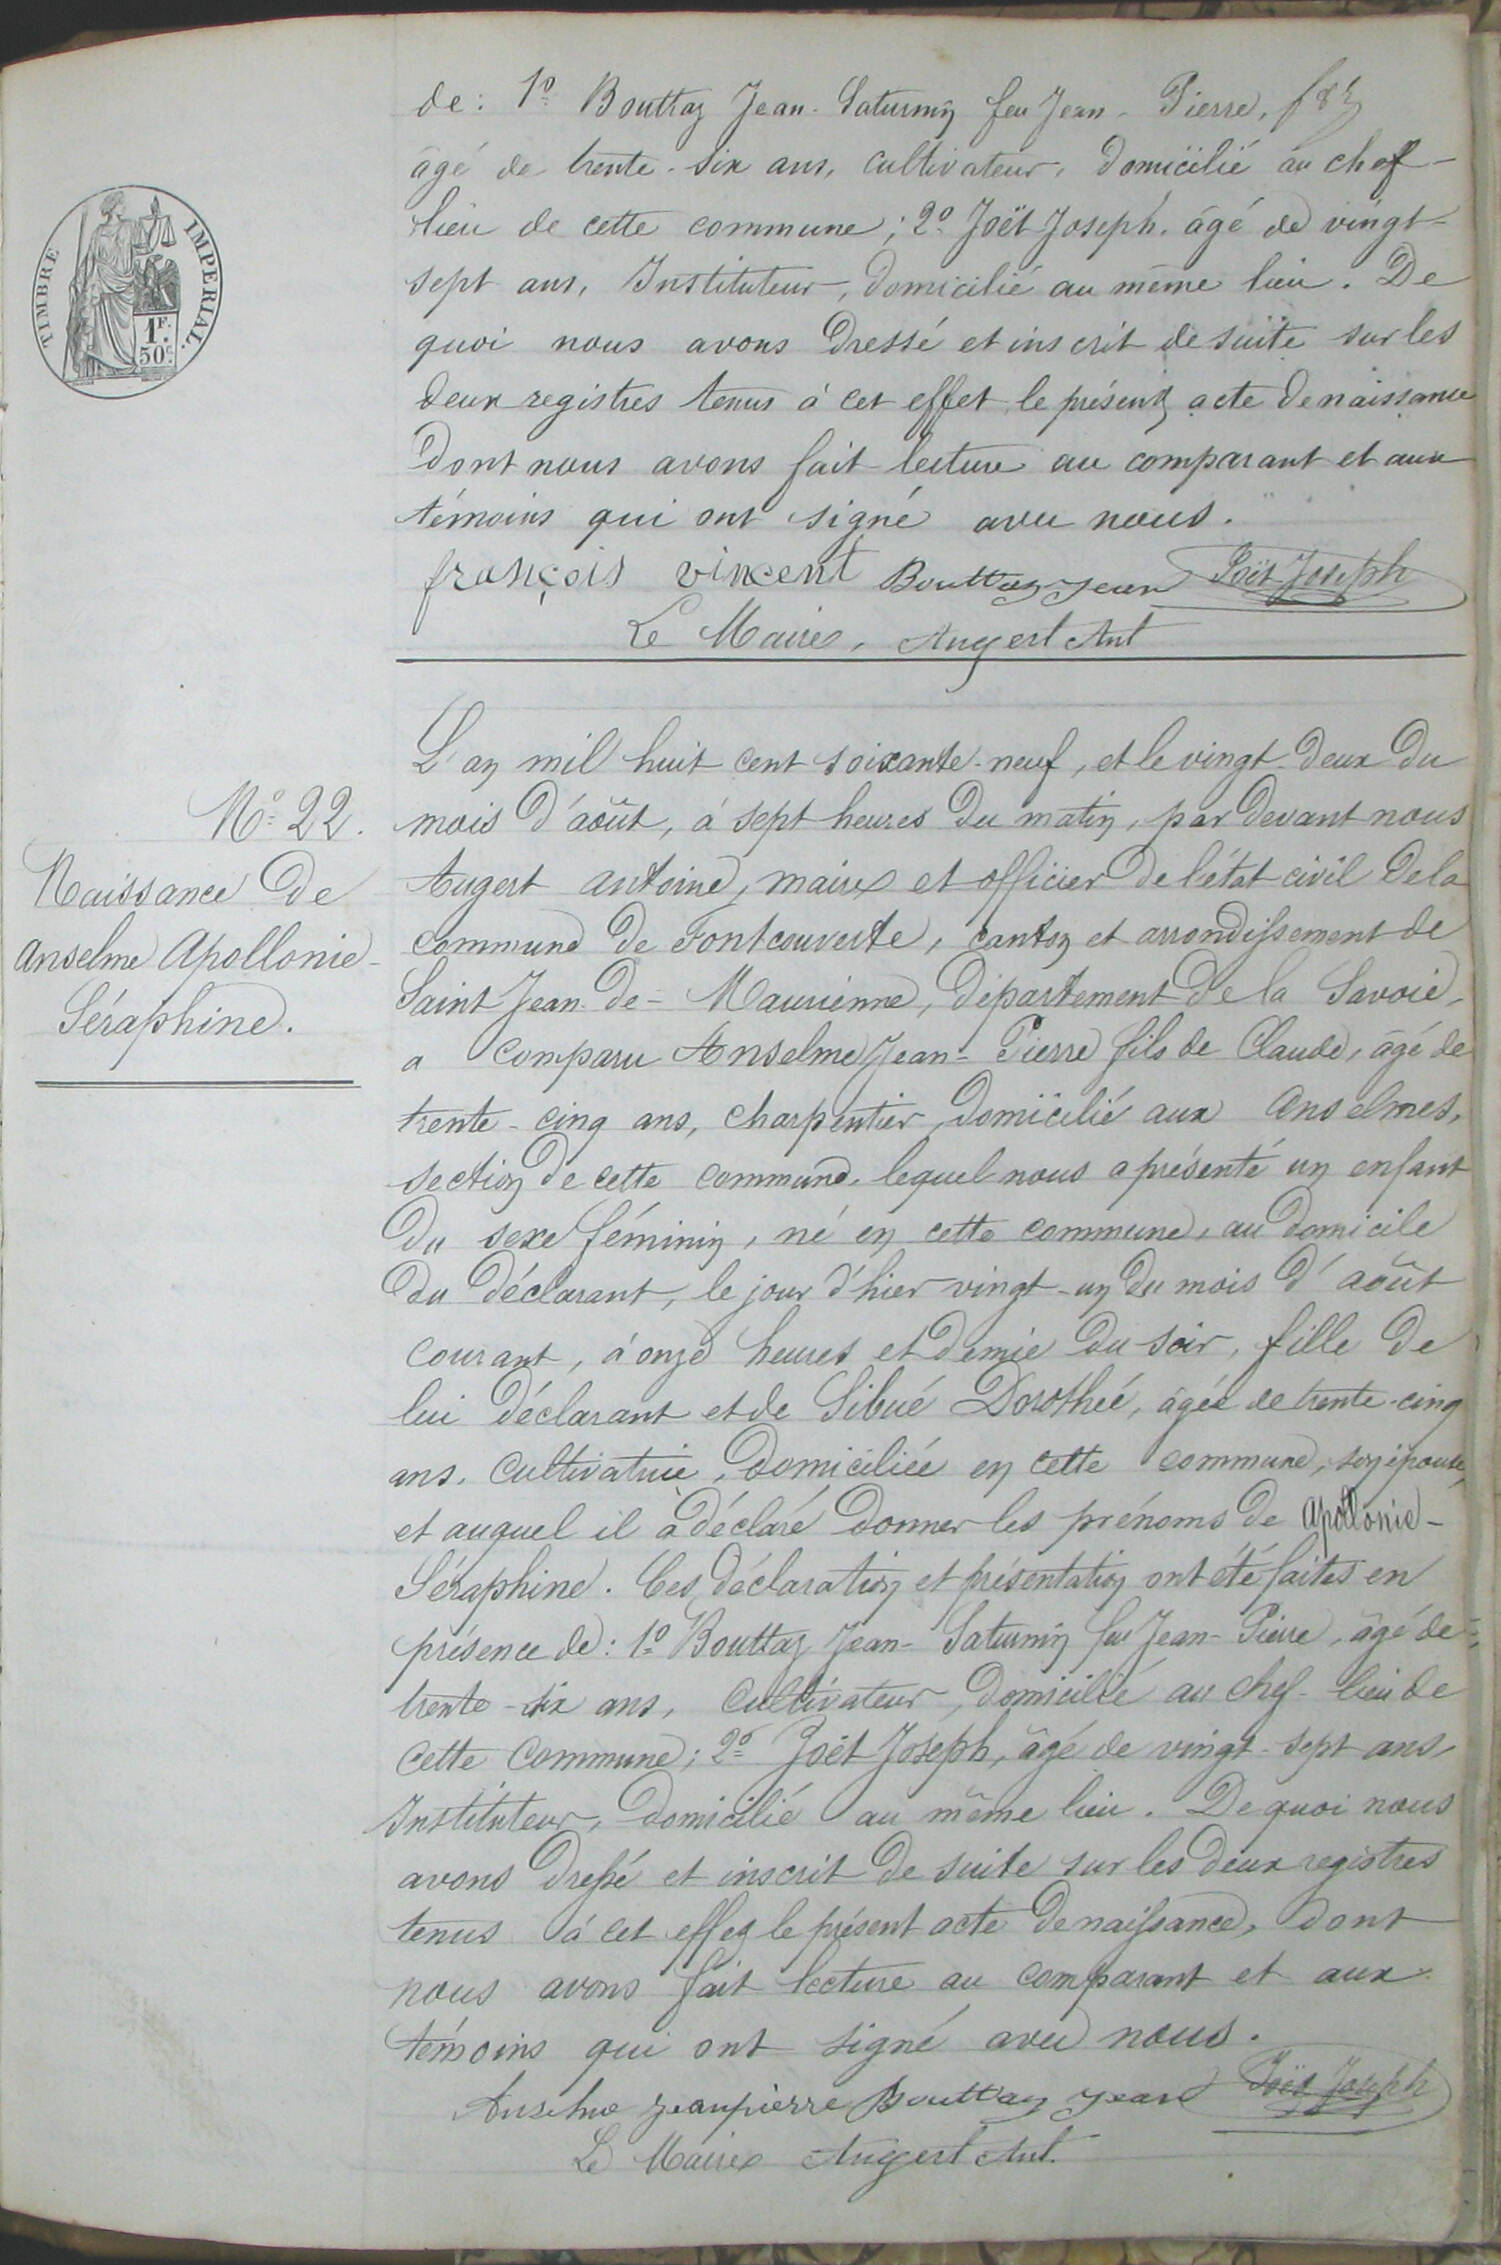 de : 1º Bouttaz Jean-Saturnin feu Jean-Pierre,
âgé de trente-six ans, cultivateur, domicilié au chef-
lieu de cette commune ; 2º Joët Joseph, âgé de vingt-
sept ans, Instituteur, domicilié au même lieu. De
quoi nous avons dressé et inscrit de suite sur les
deux registres tenus à cet effet le présent acte de naissance
dont nous avons fait lecture au comparant et aux
témoins qui ont signé avec nous.
françois vincent Bouttaz Jean Joët Joseph
Le Maire, Augert Ant
TIMBRE IMPERIAL.
1F.
50c.
Nº 22.
Naissance de
Anselme Apollonie-
Séraphine.
L'an mil huit cent soixante-neuf, et le vingt-deux du
mois d'août, à sept heures du matin, par devant nous
Augert antoine, maire et officier de l'état civil de la
commune de Fontcouverte, canton et arrondissement de
Saint Jean-de-Maurienne, département de la Savoie,
a comparu Anselme Jean-Pierre fils de Claude, âgé de
trente-cinq ans, charpentier, domicilié aux Anselmes,
section de cette commune, lequel nous a présenté un enfant
du sexe féminin, né en cette commune, au domicile
du déclarant, le jour d'hier vingt-un du mois d'août
courant, à onze heures et demie du soir, fille de
lui déclarant et de Sibué Dorothée, âgée de trente-cinq
ans, cultivatrice, domiciliée en cette commune, son épouse,
et auquel il a déclaré donner les prénoms de Apollonie-
Séraphine. Ces déclaration et présentation ont été faites en
présence de : 1º Bouttaz Jean-Saturnin feu Jean-Pierre, âgé de
trente-six ans, cultivateur, domicilié au chef-lieu de
cette commune ; 2º Joët Joseph, âgé de vingt-sept ans,
Instituteur, domicilié au même lieu. De quoi nous
avons dressé et inscrit de suite sur les deux registres
tenus à cet effet le présent acte de naissance, dont
nous avons fait lecture au comparant et aux
témoins qui ont signé avec nous.
Anselme jeanpierre Bouttaz Jean Joët Joseph
Le Maire Augert Ant.